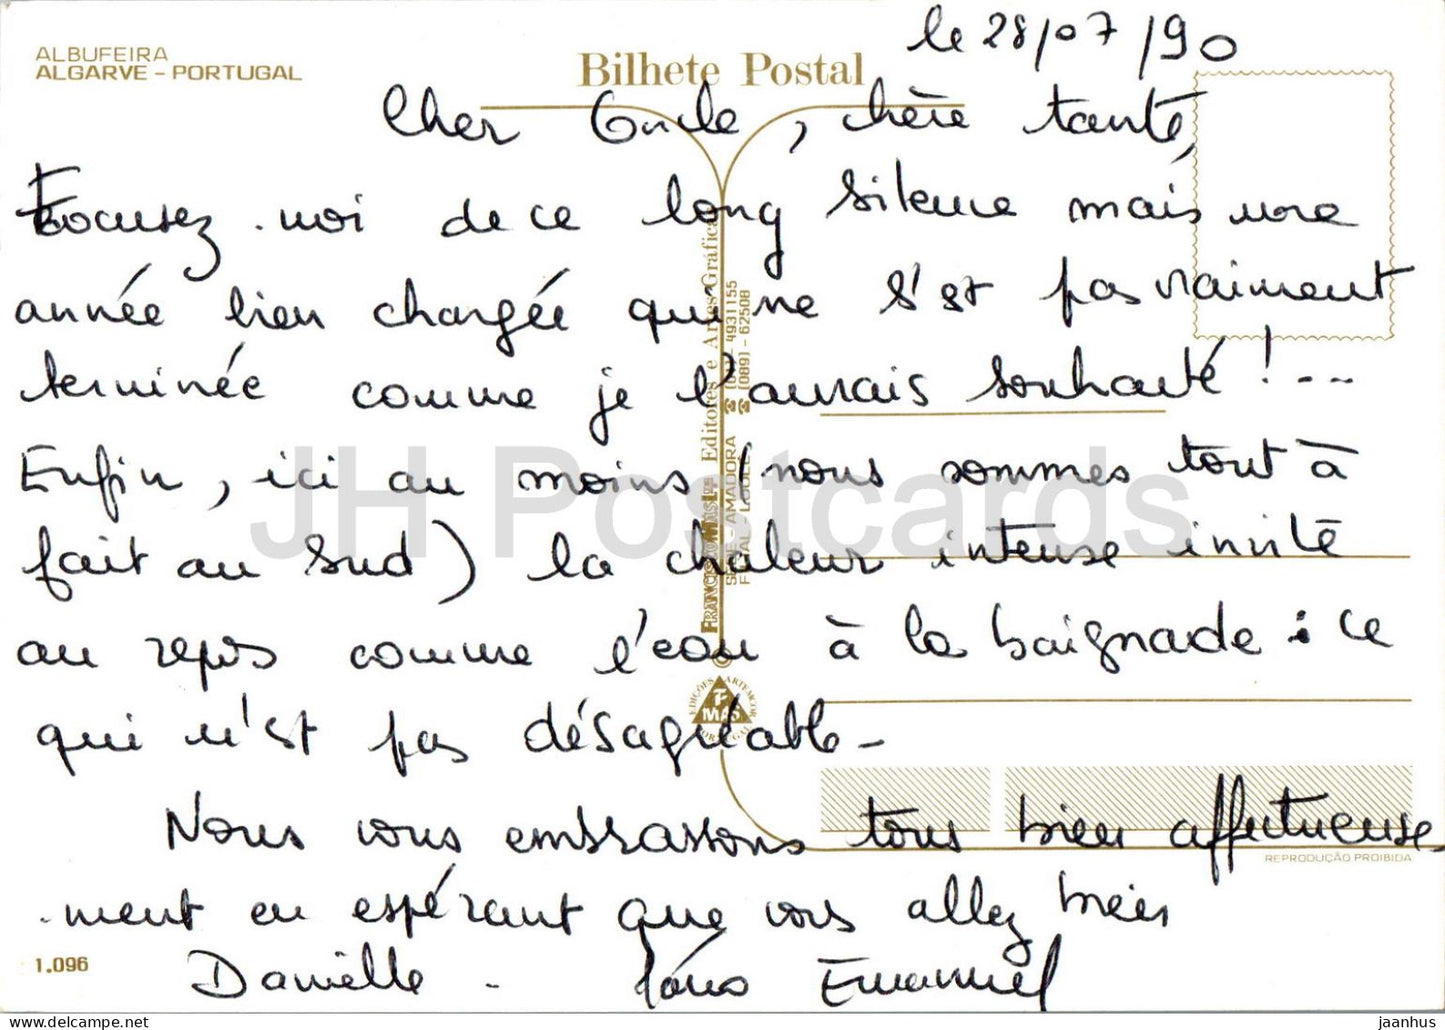 le 28/07/90
ALBUFEIRA
ALGARVE - PORTUGAL
Bilhete Postal
Cher Oncle, chère tante,
Excusez-moi de ce long silence mais une
année bien chargée qui ne s'est pas vraiment
terminée comme je l'aurais souhaité ! ---
Enfin, ici au moins (nous sommes tout à
fait au Sud) la chaleur intense invite
au repos comme l'eau à la baignade : ce
qui n'est pas désagréable -
Nous vous embrassons tous bien affectueuse
-ment en espérant que vous allez bien
Danielle - Emanuel
1.096
FRANCISCO MAS Lda Editores e Artes Gráficas
AMADORA 4931155
LOULÉ (089) - 62508
EDIÇÕES ARTEMCOR
F MAS
PORTUGAL
REPRODUÇÃO PROIBIDA
JH Postcards
jaanhus